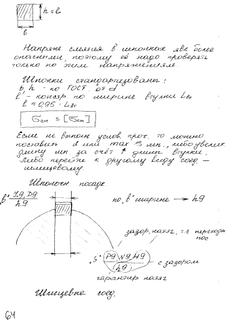 h = b
b
Напряж. смятия в шпонках яв. более
опасными, поэтому её надо проверять
только по этим напряжениям
Шпонки стандартизованы:
b, h - по ГОСТ от d
ℓ - по ширине втулки
σсм ≤ [σсм]
Если не выполн. услов. проч. то можно
поставить 2 или так 3 шп., либо увелич.
длину шп. за счёт ↑ длины втулки,
либо перейти к другому виду соед -
шлицевому.
Шпоночн. посадк
h9
по „b" ширине → h9
зазор, натяг, т.к. переходн.
пос
P9, N9, H9
(h9)
с зазором
гарантир. натяг
Шлицевые соед.
64